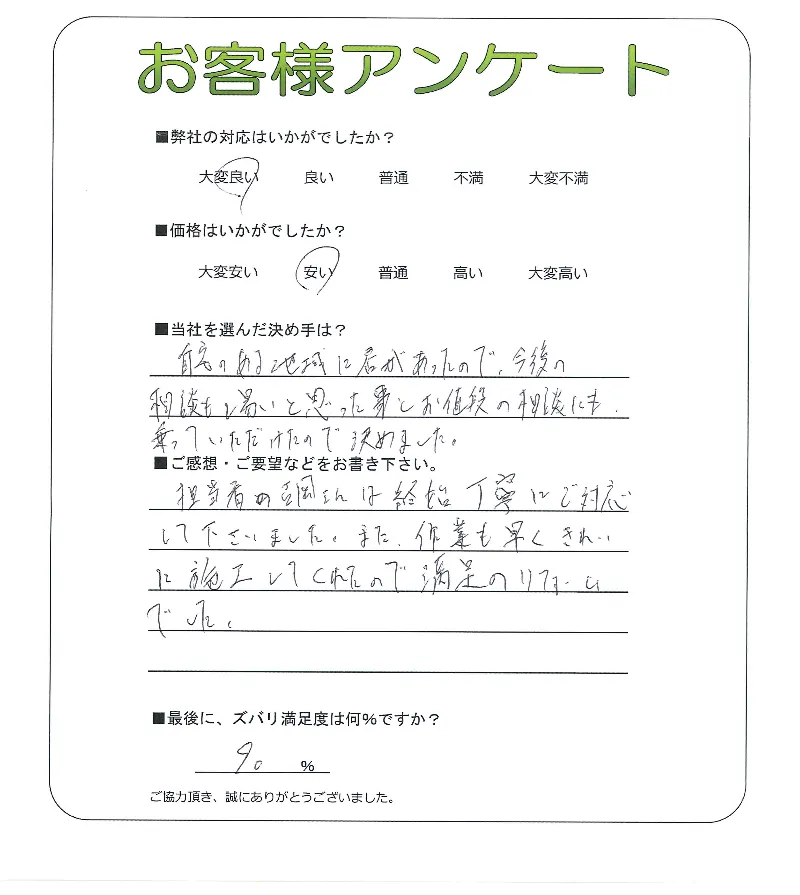 お客様アンケート
■弊社の対応はいかがでしたか？
大変良い 良い 普通 不満 大変不満
■価格はいかがでしたか？
大変安い 安い 普通 高い 大変高い
■当社を選んだ決め手は？
自宅のある地域に店があったので、今後の
相談もし易いと思った事とお値段の相談にも
乗っていただけたので決めました。
■ご感想・ご要望などをお書き下さい。
担当者の さんは終始丁寧にご対応
して下さいました。また、作業も早くきれい
に施工してくれたので満足のリフォーム
でした。
■最後に、ズバリ満足度は何%ですか？
90 %
ご協力頂き、誠にありがとうございました。